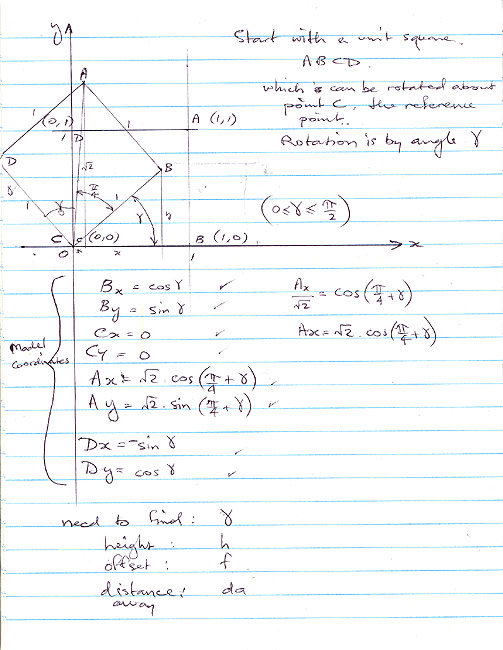 Start with a unit square.
ABCD.
which can be rotated about
point C, the reference
point.
Rotation is by angle γ
(0 ≤ γ ≤ π/2)
y
A
1
1
(0,1)
A (1,1)
1
D
D
√2
π/4
B
γ
1
γ
1
γ
h
C
C
(0,0)
B (1,0)
x
O
x
x
1
Bx = cos γ ✓
By = sin γ ✓
Cx = 0 ✓
Cy = 0 ✓
Ax = √2 . cos (π/4 + γ) ✓
Ay = √2 . sin (π/4 + γ) ✓
Dx = -sin γ ✓
Dy = cos γ ✓
Model
coordinates
Ax/√2 = cos (π/4 + γ)
Ax = √2 . cos (π/4 + γ)
need to find : γ
height : h
offset : f
distance : da
away